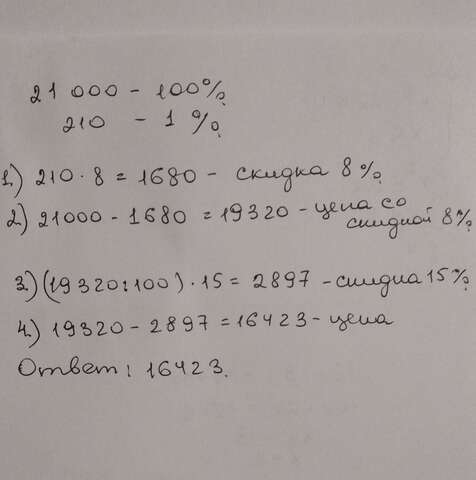 21 000 - 100%
210 - 1 %
1.) 210 · 8 = 1680 - скидка 8%
2.) 21000 - 1680 = 19320 - цена со
скидкой 8%
3.) (19320:100) · 15 = 2897 - скидка 15%
4.) 19320 - 2897 = 16423 - цена
Ответ: 16423.